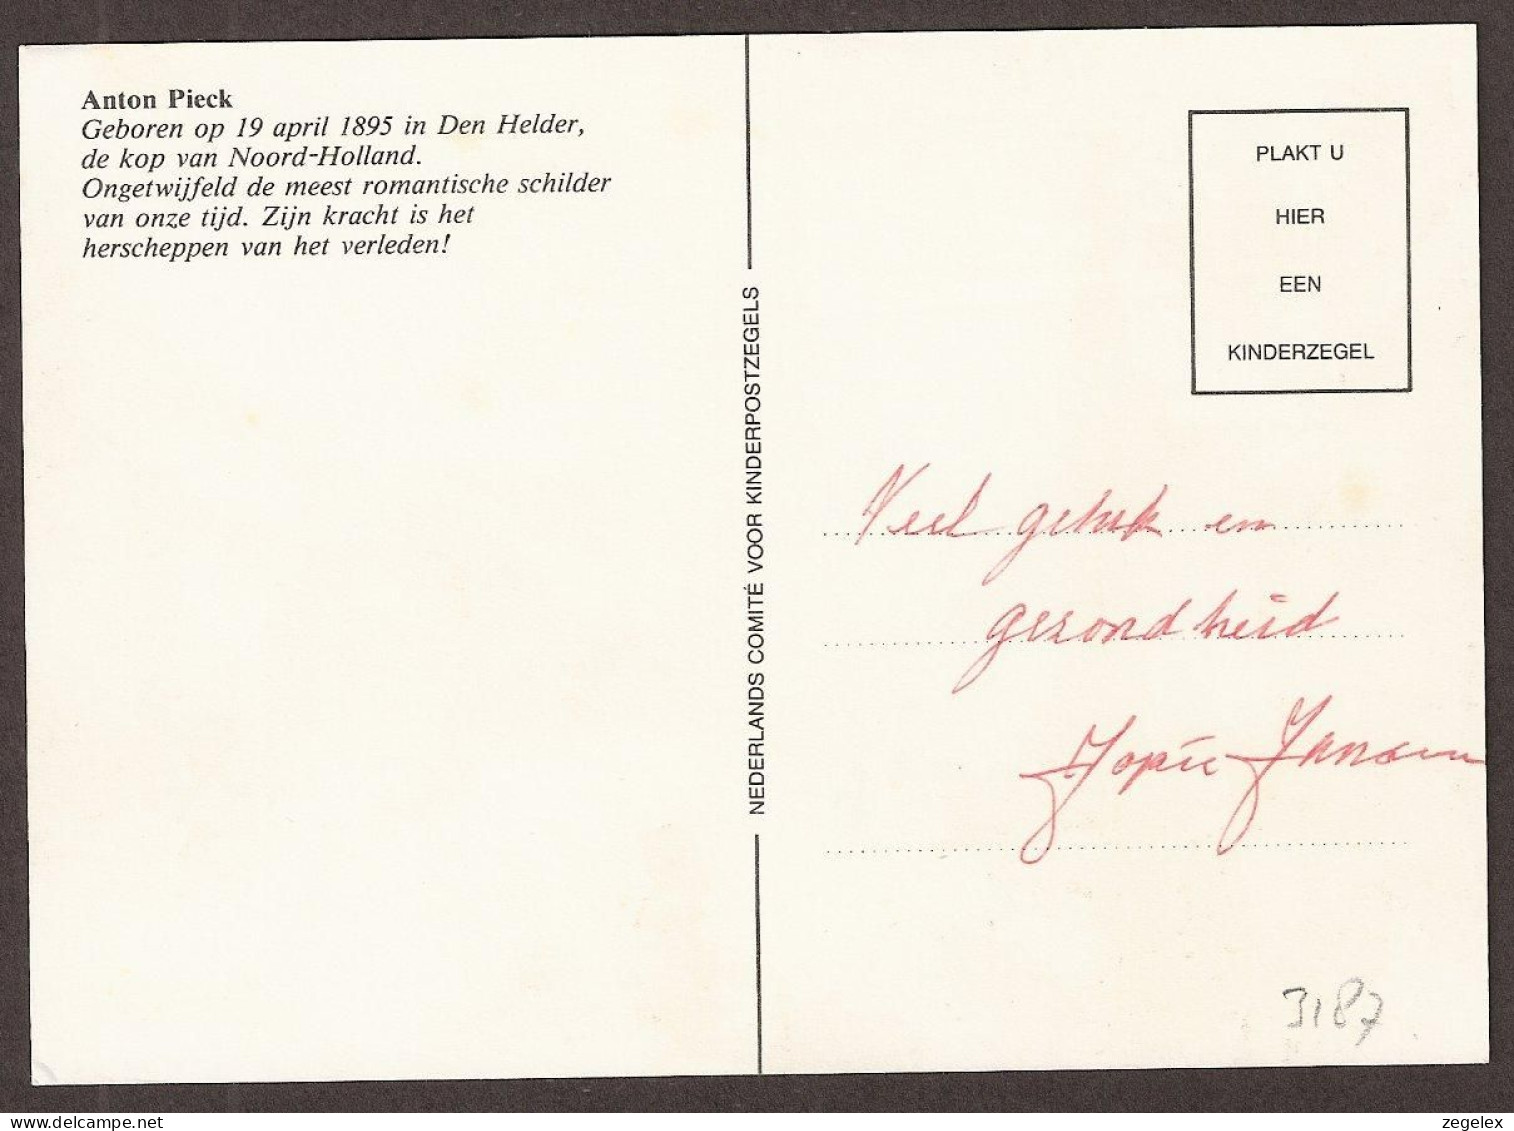 Anton Pieck
Geboren op 19 april 1895 in Den Helder,
de kop van Noord-Holland.
Ongetwijfeld de meest romantische schilder
van onze tijd. Zijn kracht is het
herscheppen van het verleden!
NEDERLANDS COMITÉ VOOR KINDERPOSTZEGELS
PLAKT U
HIER
EEN
KINDERZEGEL
Veel geluk en
gezondheid
Jopie Jansen
3187
delcampe.net
zegelex